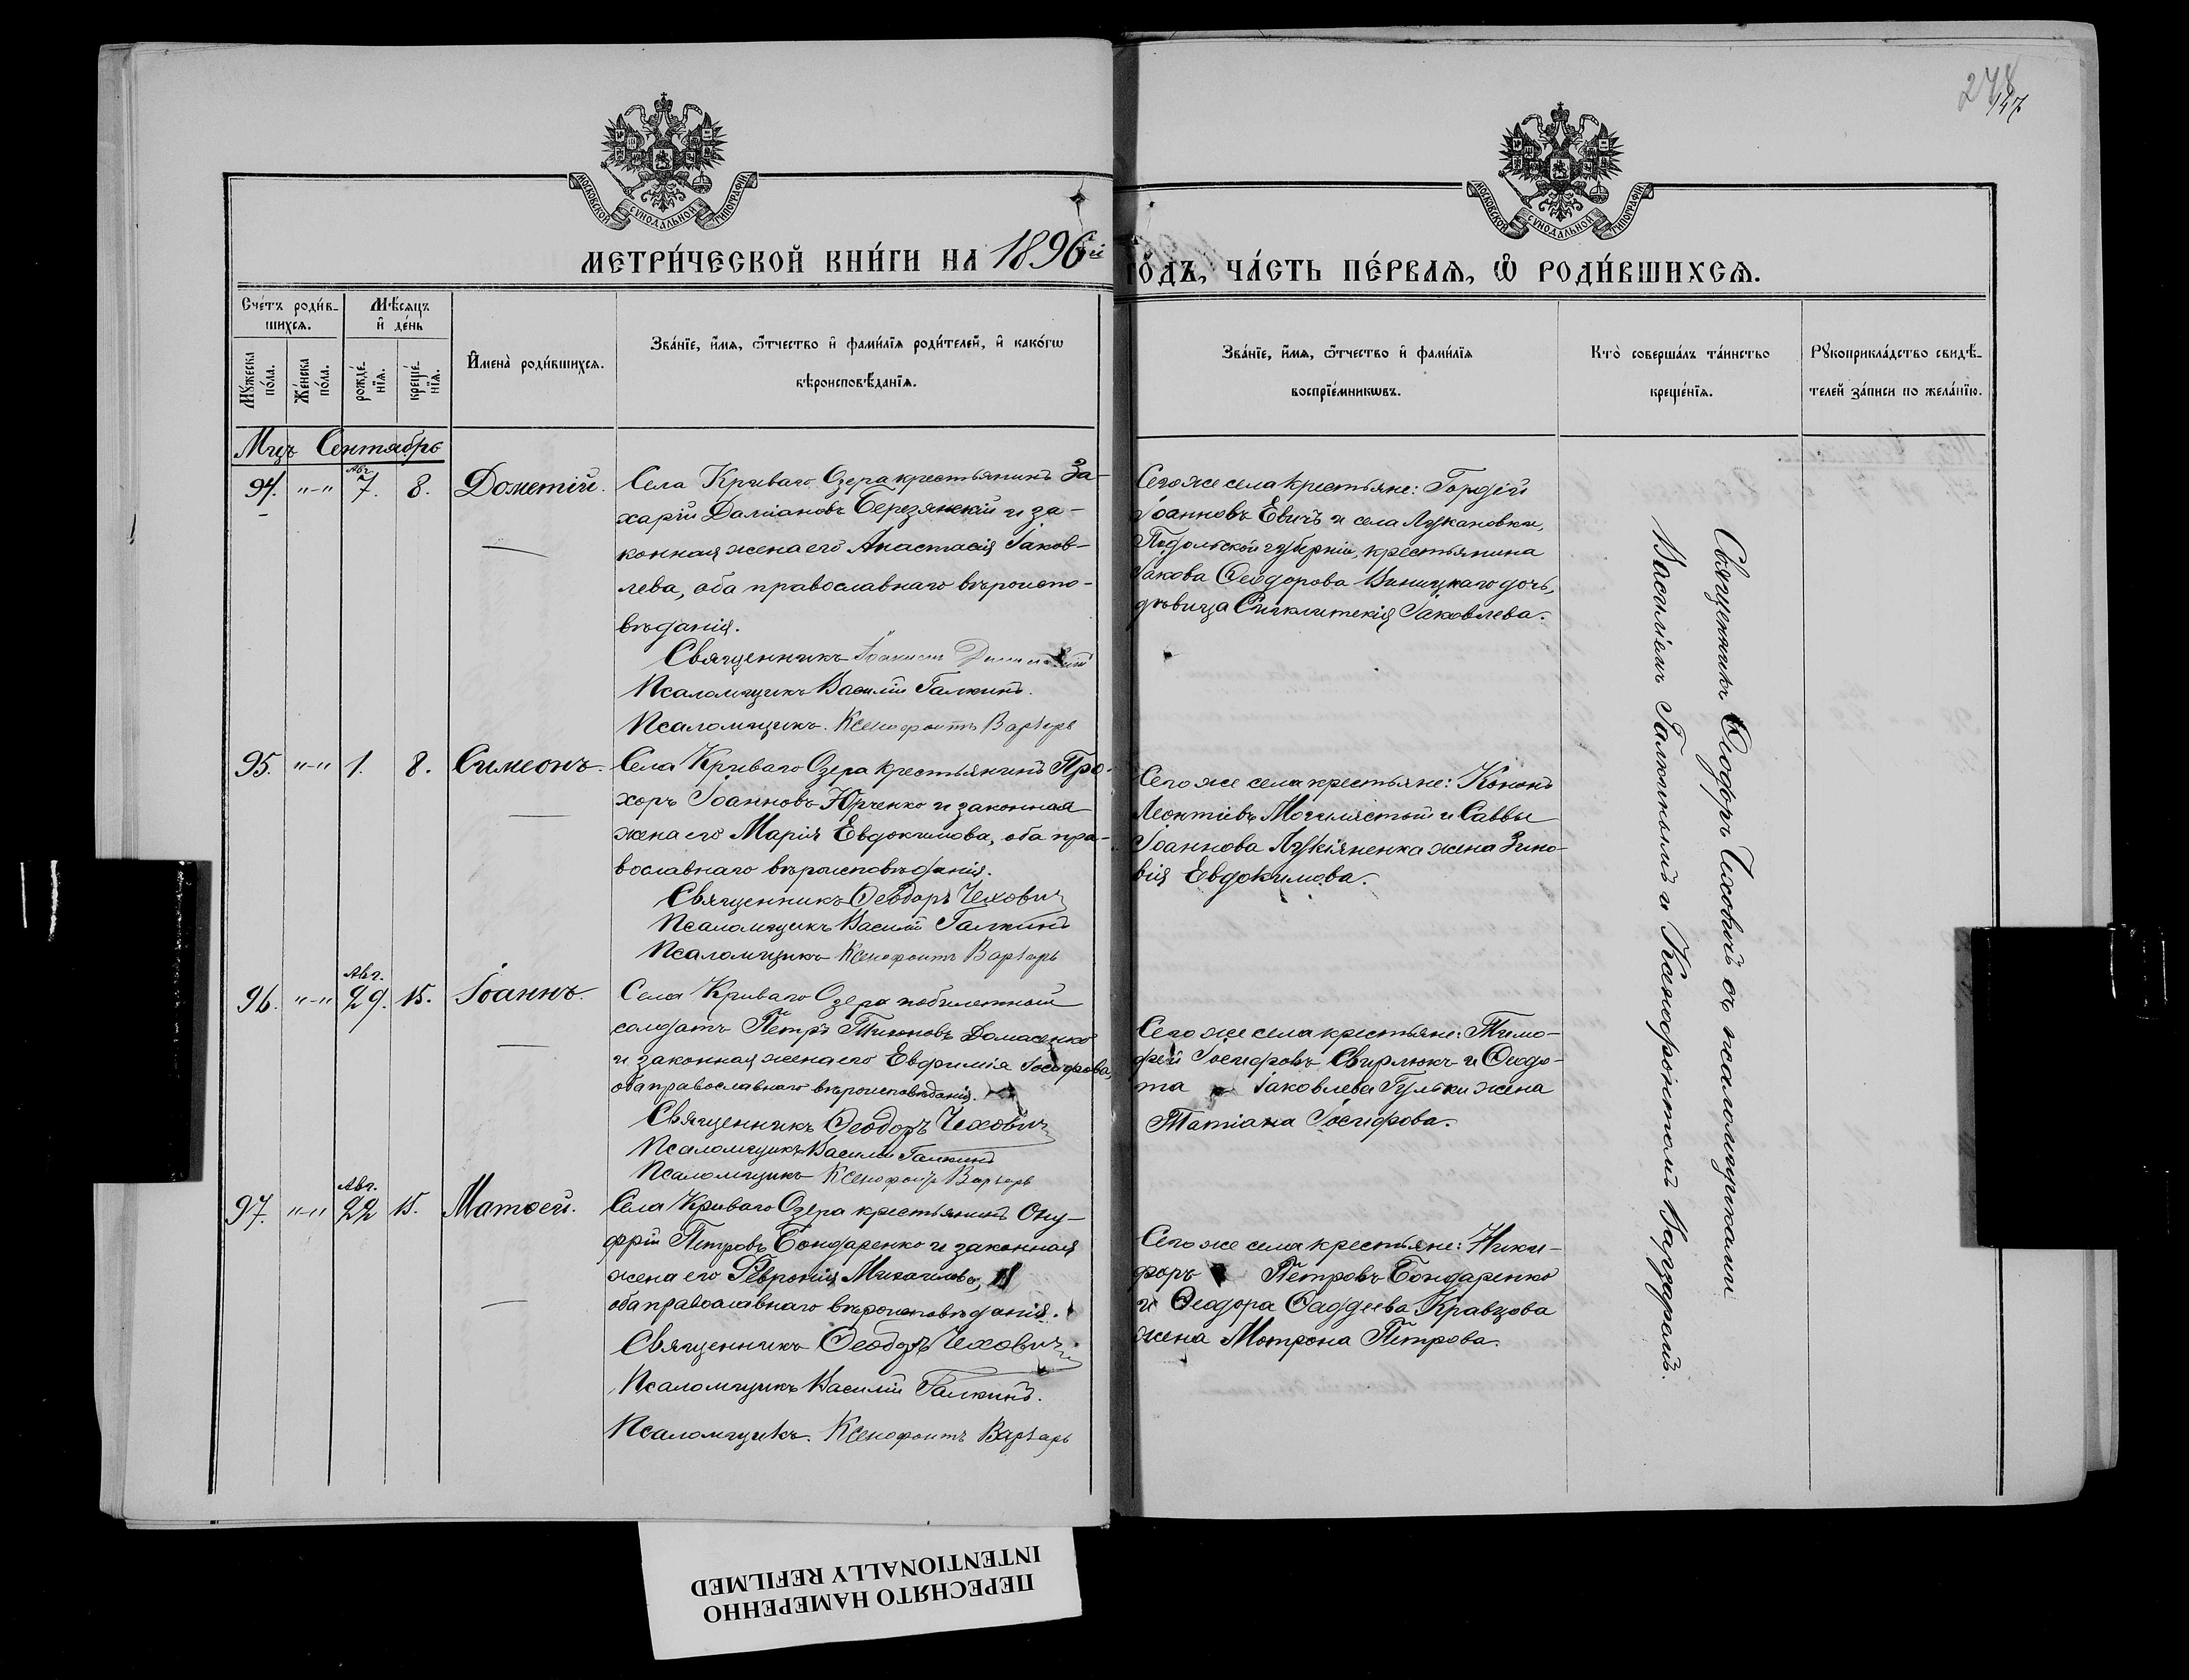 278
147
МОСКОВСКОЙ СѴНОДАЛЬНОЙ ТИПОГРАФІИ
МОСКОВСКОЙ СѴНОДАЛЬНОЙ ТИПОГРАФІИ
МЕТРИ́ЧЕСКОЙ КНИ́ГИ НА 1896й
ГО́ДЪ, ЧА́СТЬ ПЕ́РВАѦ, Ѽ РОДИ́ВШИХСѦ.
Сче́тъ роди́в-
шихсѧ.
Мѣсяцъ
и де́нь
Мꙋжеска
по́ла.
Же́нска
по́ла.
рожде́-
нїѧ.
креще́-
нїѧ.
Имена̀ роди́вшихсѧ.
Зва́нїе, и́мѧ, ѻ́тчество и фами́лїѧ роди́телей, и како́гѡ
вѣроисповѣ́данїѧ.
Зва́нїе, и́мѧ, ѻ́тчество и фами́лїѧ
воспрїе́мникѡвъ.
Кто̀ соверша́лъ та́инство
креще́нїѧ.
Рꙋкоприкла́дство свидѣ́-
телей за́писи по жела́нїю.
Мцъ Сентябрь
94. "-" Авг. 7. 8. Дометій.
Села Криваго Озера крестьянинъ За-
харій Даміановъ Березянскій и за-
конная жена его Анастасія Іаков-
лева, оба православнаго вѣроиспо-
вѣданія.
Священникъ Іоаннъ
Псаломщикъ Василій Галкинъ.
Псаломщикъ. Ксенофонтъ Варзарь
Сего же села крестьяне: Гордій
Іоанновъ Евичъ и села Лукановки,
Подольской губерніи, крестьянина
Іакова Ѳеодорова Виницкаго дочь,
дѣвица Сигклитекія Іаковлева.
95. "-" 1. 8. Симеонъ.
Села Криваго Озера крестьянинъ Про-
хоръ Іоанновъ Юрченко и законная
жена его Марія Евдокимова, оба пра-
вославнаго вѣроисповѣданія.
Священникъ Ѳеодоръ Чеховичъ
Псаломщикъ Василій Галкинъ
Псаломщикъ Ксенофонтъ Варзарь
Сего же села крестьяне: Кононъ
Леонтіевъ Могилястый и Саввы
Іоаннова Лукіяненка жена Зино-
вія Евдокимова.
96. "-" Авг. 29. 15. Іоаннъ.
Села Криваго Озера побилетный
солдатъ Петръ Тихоновъ Домасенко
и законная жена его Евфимія Іосифова,
оба православнаго вѣроисповѣданія.
Священникъ Ѳеодоръ Чеховичъ
Псаломщикъ Василій Галкинъ
Псаломщикъ Ксенофонтъ Варзарь
Сего же села крестьяне: Тимо-
фей Іосифовъ Свирлюкъ и Ѳеодо-
та Іаковлева Гульки жена
Татіана Іосифова.
97. "-" Авг. 22 15. Матѳей.
Села Криваго Озера крестьянинъ Ону-
фрій Петровъ Бондаренко и законная
жена его Феvронія Михаилова,
оба православнаго вѣроисповѣданія.
Священникъ Ѳеодоръ Чеховичъ
Псаломщикъ Василій Галкинъ.
Псаломщикъ. Ксенофонтъ Варзарь
Сего же села крестьяне: Ники-
форъ Петровъ Бондаренко
и Ѳеодора Ѳаддеева Кравцова
жена Мотрона Петрова.
Священникъ Ѳеодоръ Чеховичъ съ псаломщиками
Василіемъ Галкинымъ и Ксенофонтомъ Варзаремъ.
ПЕРЕСНЯТО НАМЕРЕННО
INTENTIONALLY REFILMED